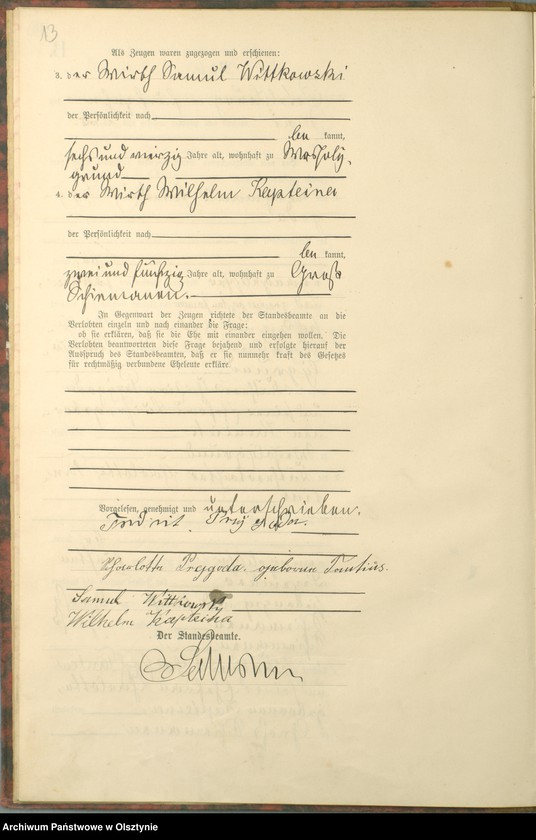 13
Als Zeugen waren zugezogen und erschienen:
3. der Wirth Samul Wittkowski
der Persönlichkeit nach
be kannt,
sechsundvierzig Jahre alt, wohnhaft zu
grund
4. der Wirth Wilhelm Kapteina
der Persönlichkeit nach
be kannt,
zwei und fünfzig Jahre alt, wohnhaft zu Groß
Schiemanen.
In Gegenwart der Zeugen richtete der Standesbeamte an die
Verlobten einzeln und nach einander die Frage:
ob sie erklären, daß sie die Ehe mit einander eingehen wollen. Die
Verlobten beantworteten diese Frage bejahend und erfolgte hierauf der
Ausspruch des Standesbeamten, daß er sie nunmehr kraft des Gesetzes
für rechtmäßig verbundene Eheleute erkläre.
Vorgelesen, genehmigt und unterschrieben.
Charlotte Przygoda geborene Pontius
Samul Wittkowski
Wilhelm Kapteina
Der Standesbeamte.
Archiwum Państwowe w Olsztynie